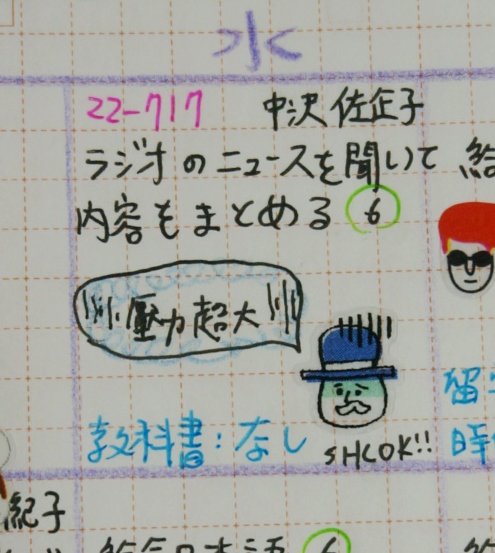 水
22-717 中沢 佐企子
ラジオのニュースを聞いて
内容をまとめる 6
壓力超大
教科書:なし
SHCOK!!
紀子